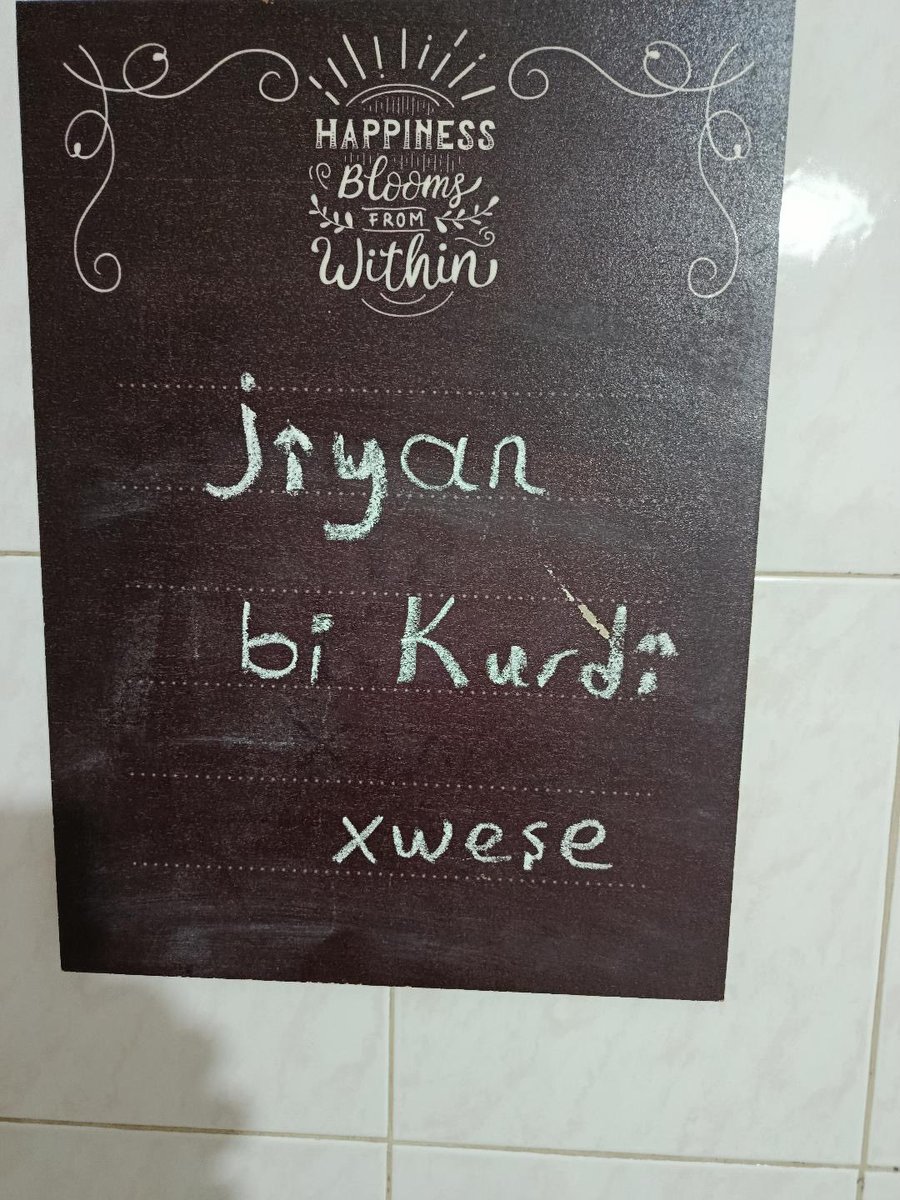 HAPPINESS
Blooms
FROM
Within
jîyan
bi Kurdî
xweşe